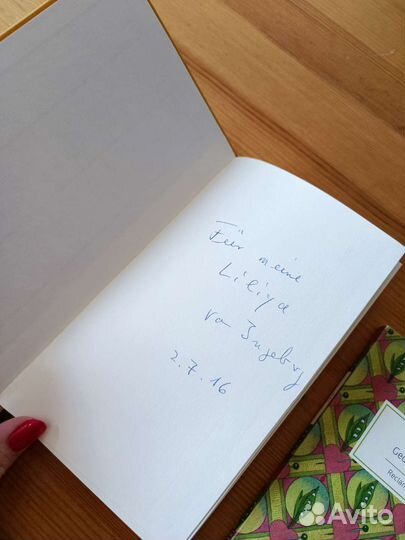 Für meine
Liliya
von Ingeborg
2.7.16
Ged
Reclam
Avito